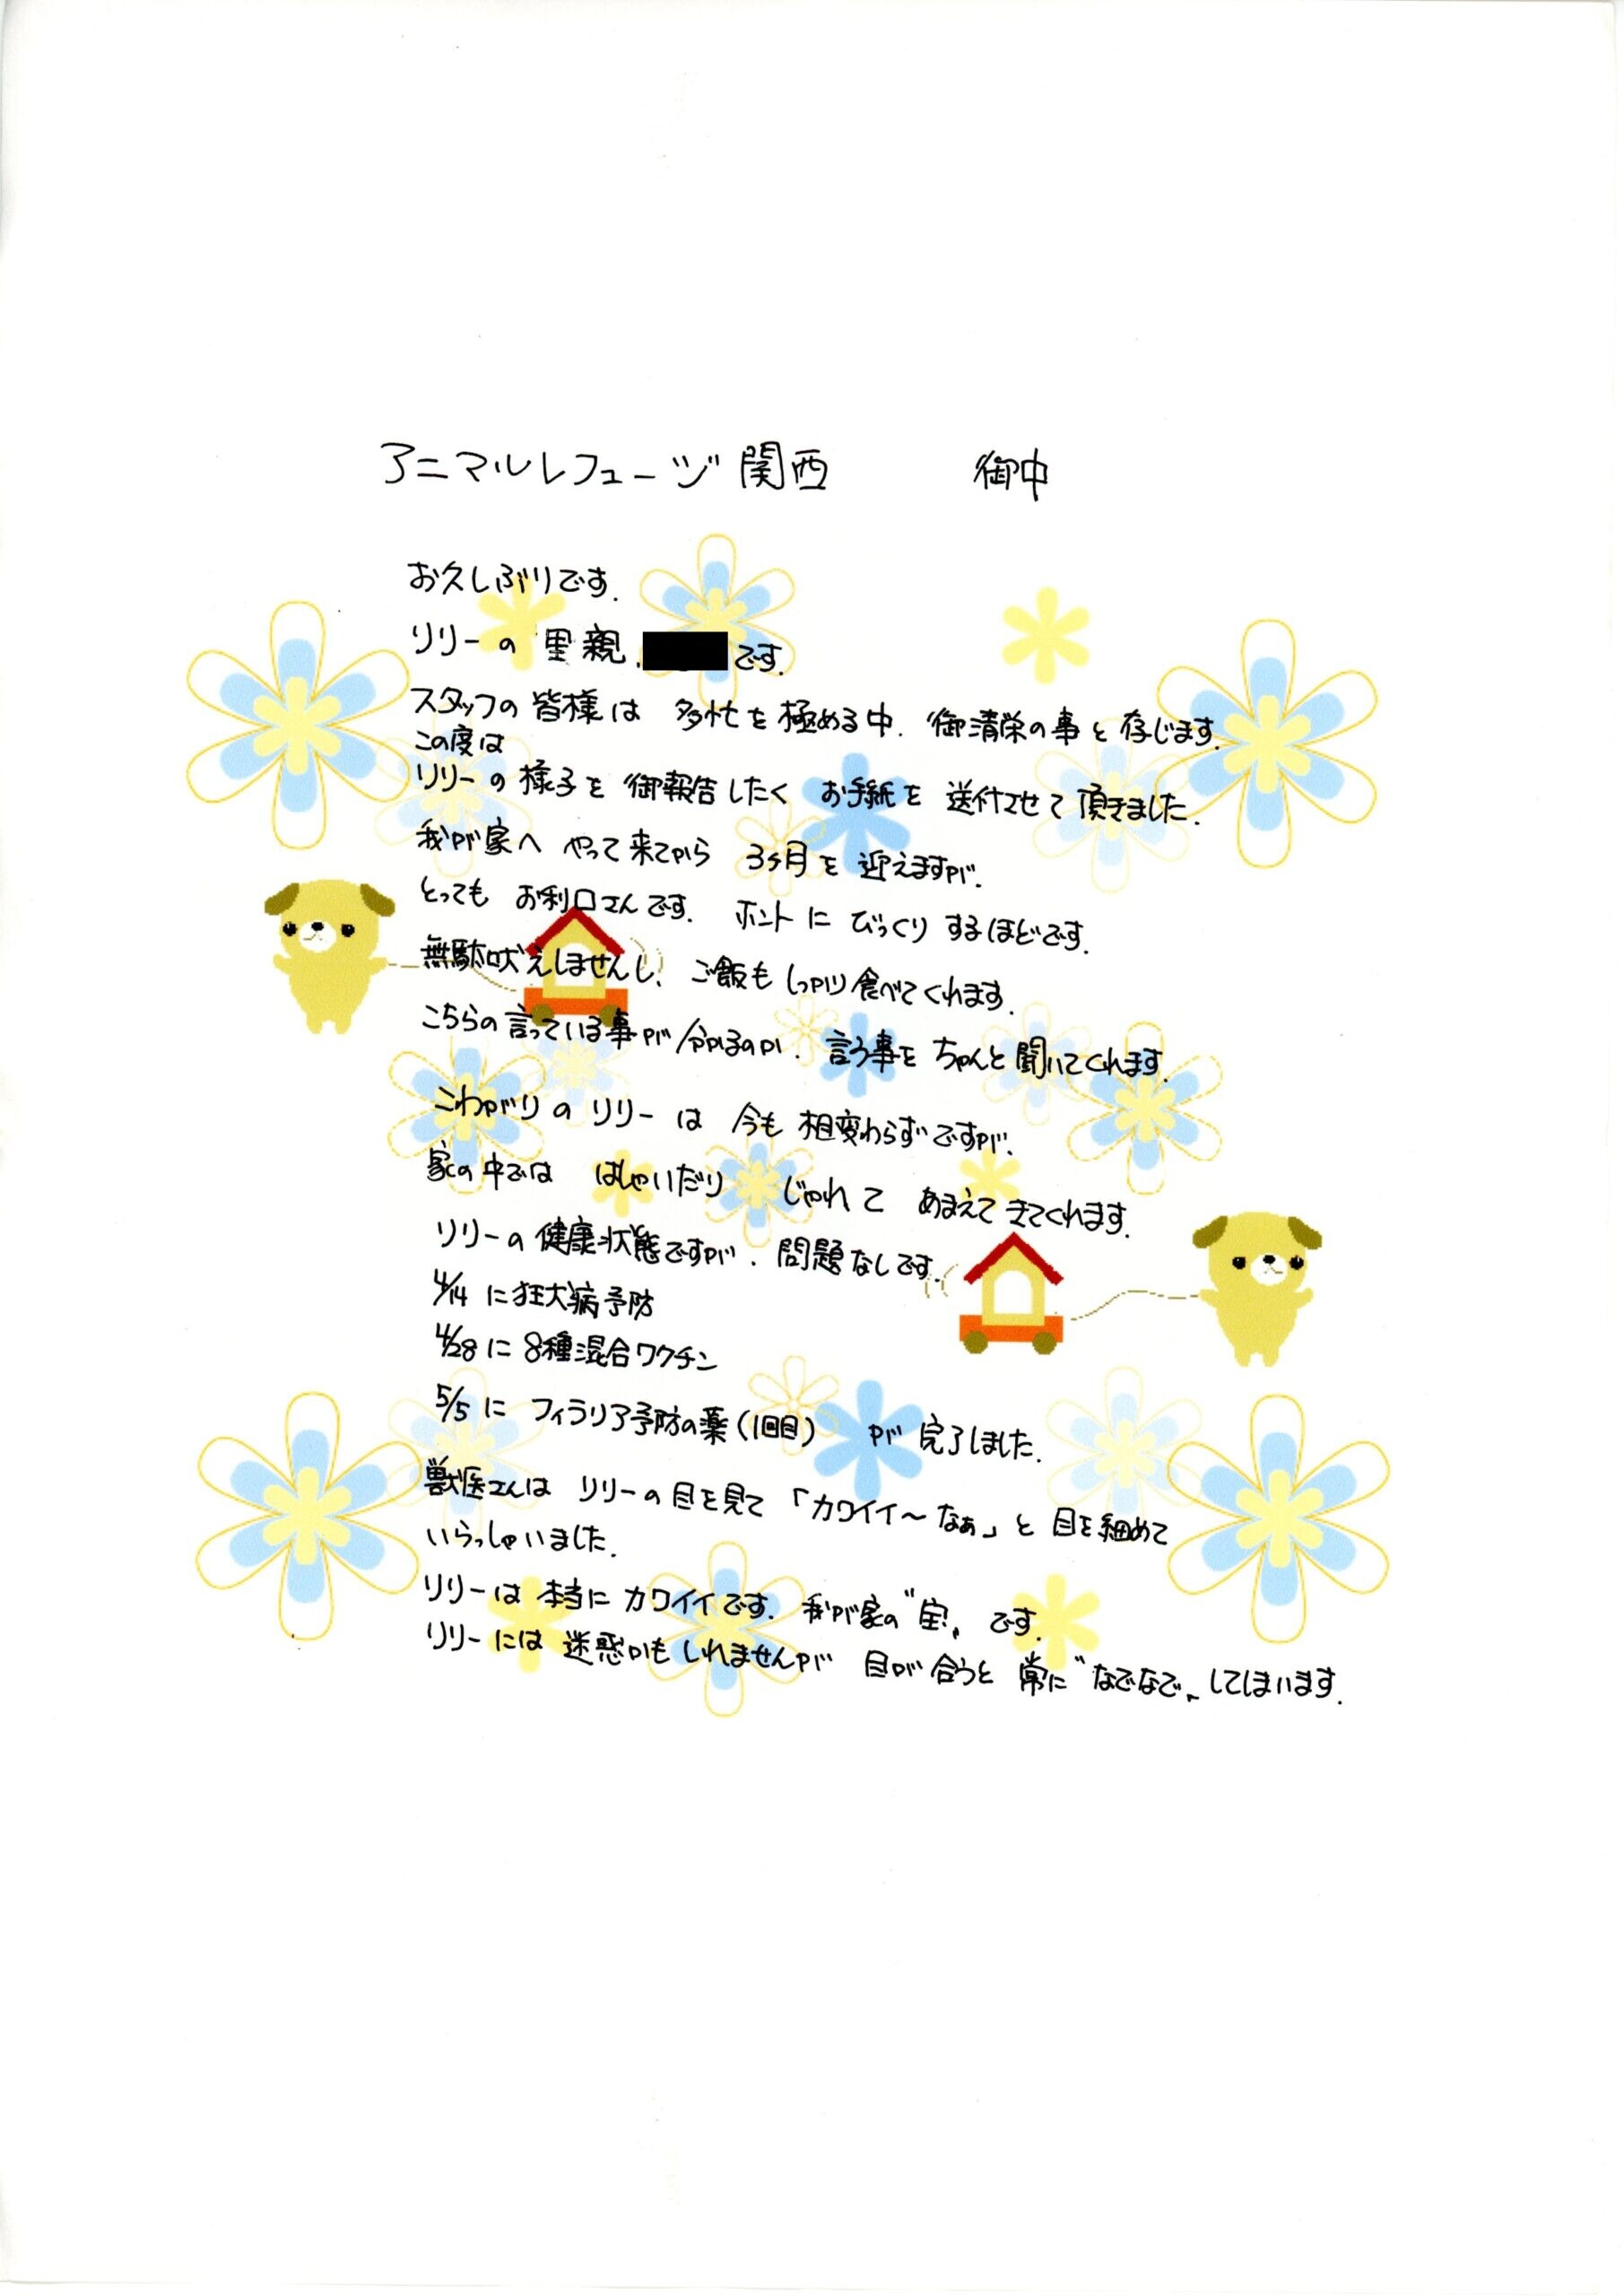 アニマルレフュージ関西 御中
お久しぶりです.
リリーの里親. です.
スタッフの皆様は 多忙を極める中. 御清栄の事と存じます.
この度は
リリーの様子を 御報告したく お手紙を 送付させて頂きました.
我が家へ やって来てから 3ヶ月を 迎えますが.
とっても お利口さんです. ホントに びっくりするほどです.
無駄吠えしませんし、ご飯も しっかり食べてくれます.
こちらの言っている事が分かるのか. 言う事を ちゃんと聞いてくれます.
こわがりのリリーは 今も 相変わらずですが.
家の中では はしゃいだり じゃれて あまえてきてくれます.
リリーの健康状態ですが. 問題なしです.
4/14 に狂犬病予防
4/28 に 8種混合ワクチン
5/5 に フィラリア予防の薬(1回目) が 完了しました.
獣医さんは リリーの目を見て「カワイイ〜なぁ」と 目を細めて
いらっしゃいました.
リリーは 本当に カワイイです. 我が家の〝宝〟です.
リリーには 迷惑かもしれませんが 目が合うと 常に〝なでなで〟してしまいます.